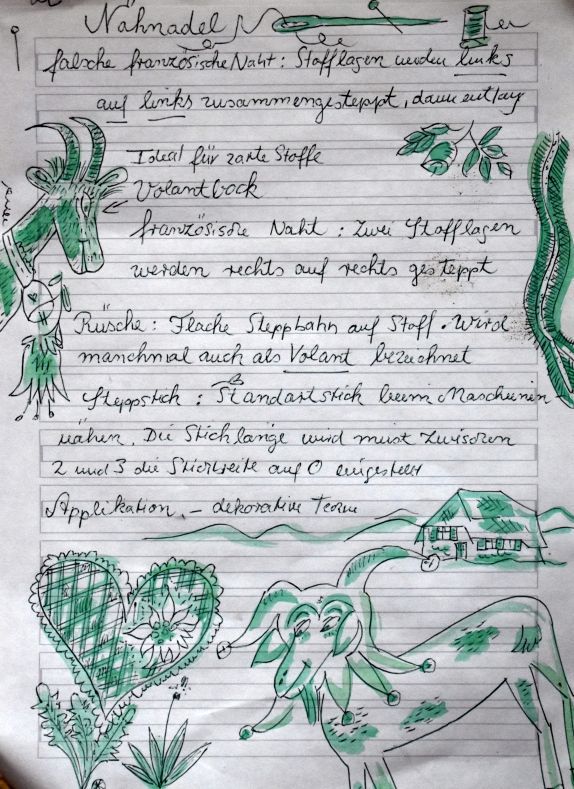 Nähnadel
falsche französische Naht: Stofflagen werden links
auf links zusammengesteppt, dann entlang
Ideal für zarte Stoffe
Volantbock
französische Naht: Zwei Stofflagen
werden rechts auf rechts gesteppt
Rüsche: Flache Steppbahn auf Stoff. Wird
manchmal auch als Volant bezeichnet
Steppstich: Standartstich beim Maschinen-
nähen. Die Stichlänge wird meist zwischen
2 und 3 die Stichbreite auf 0 eingestellt
Applikation - dekorative